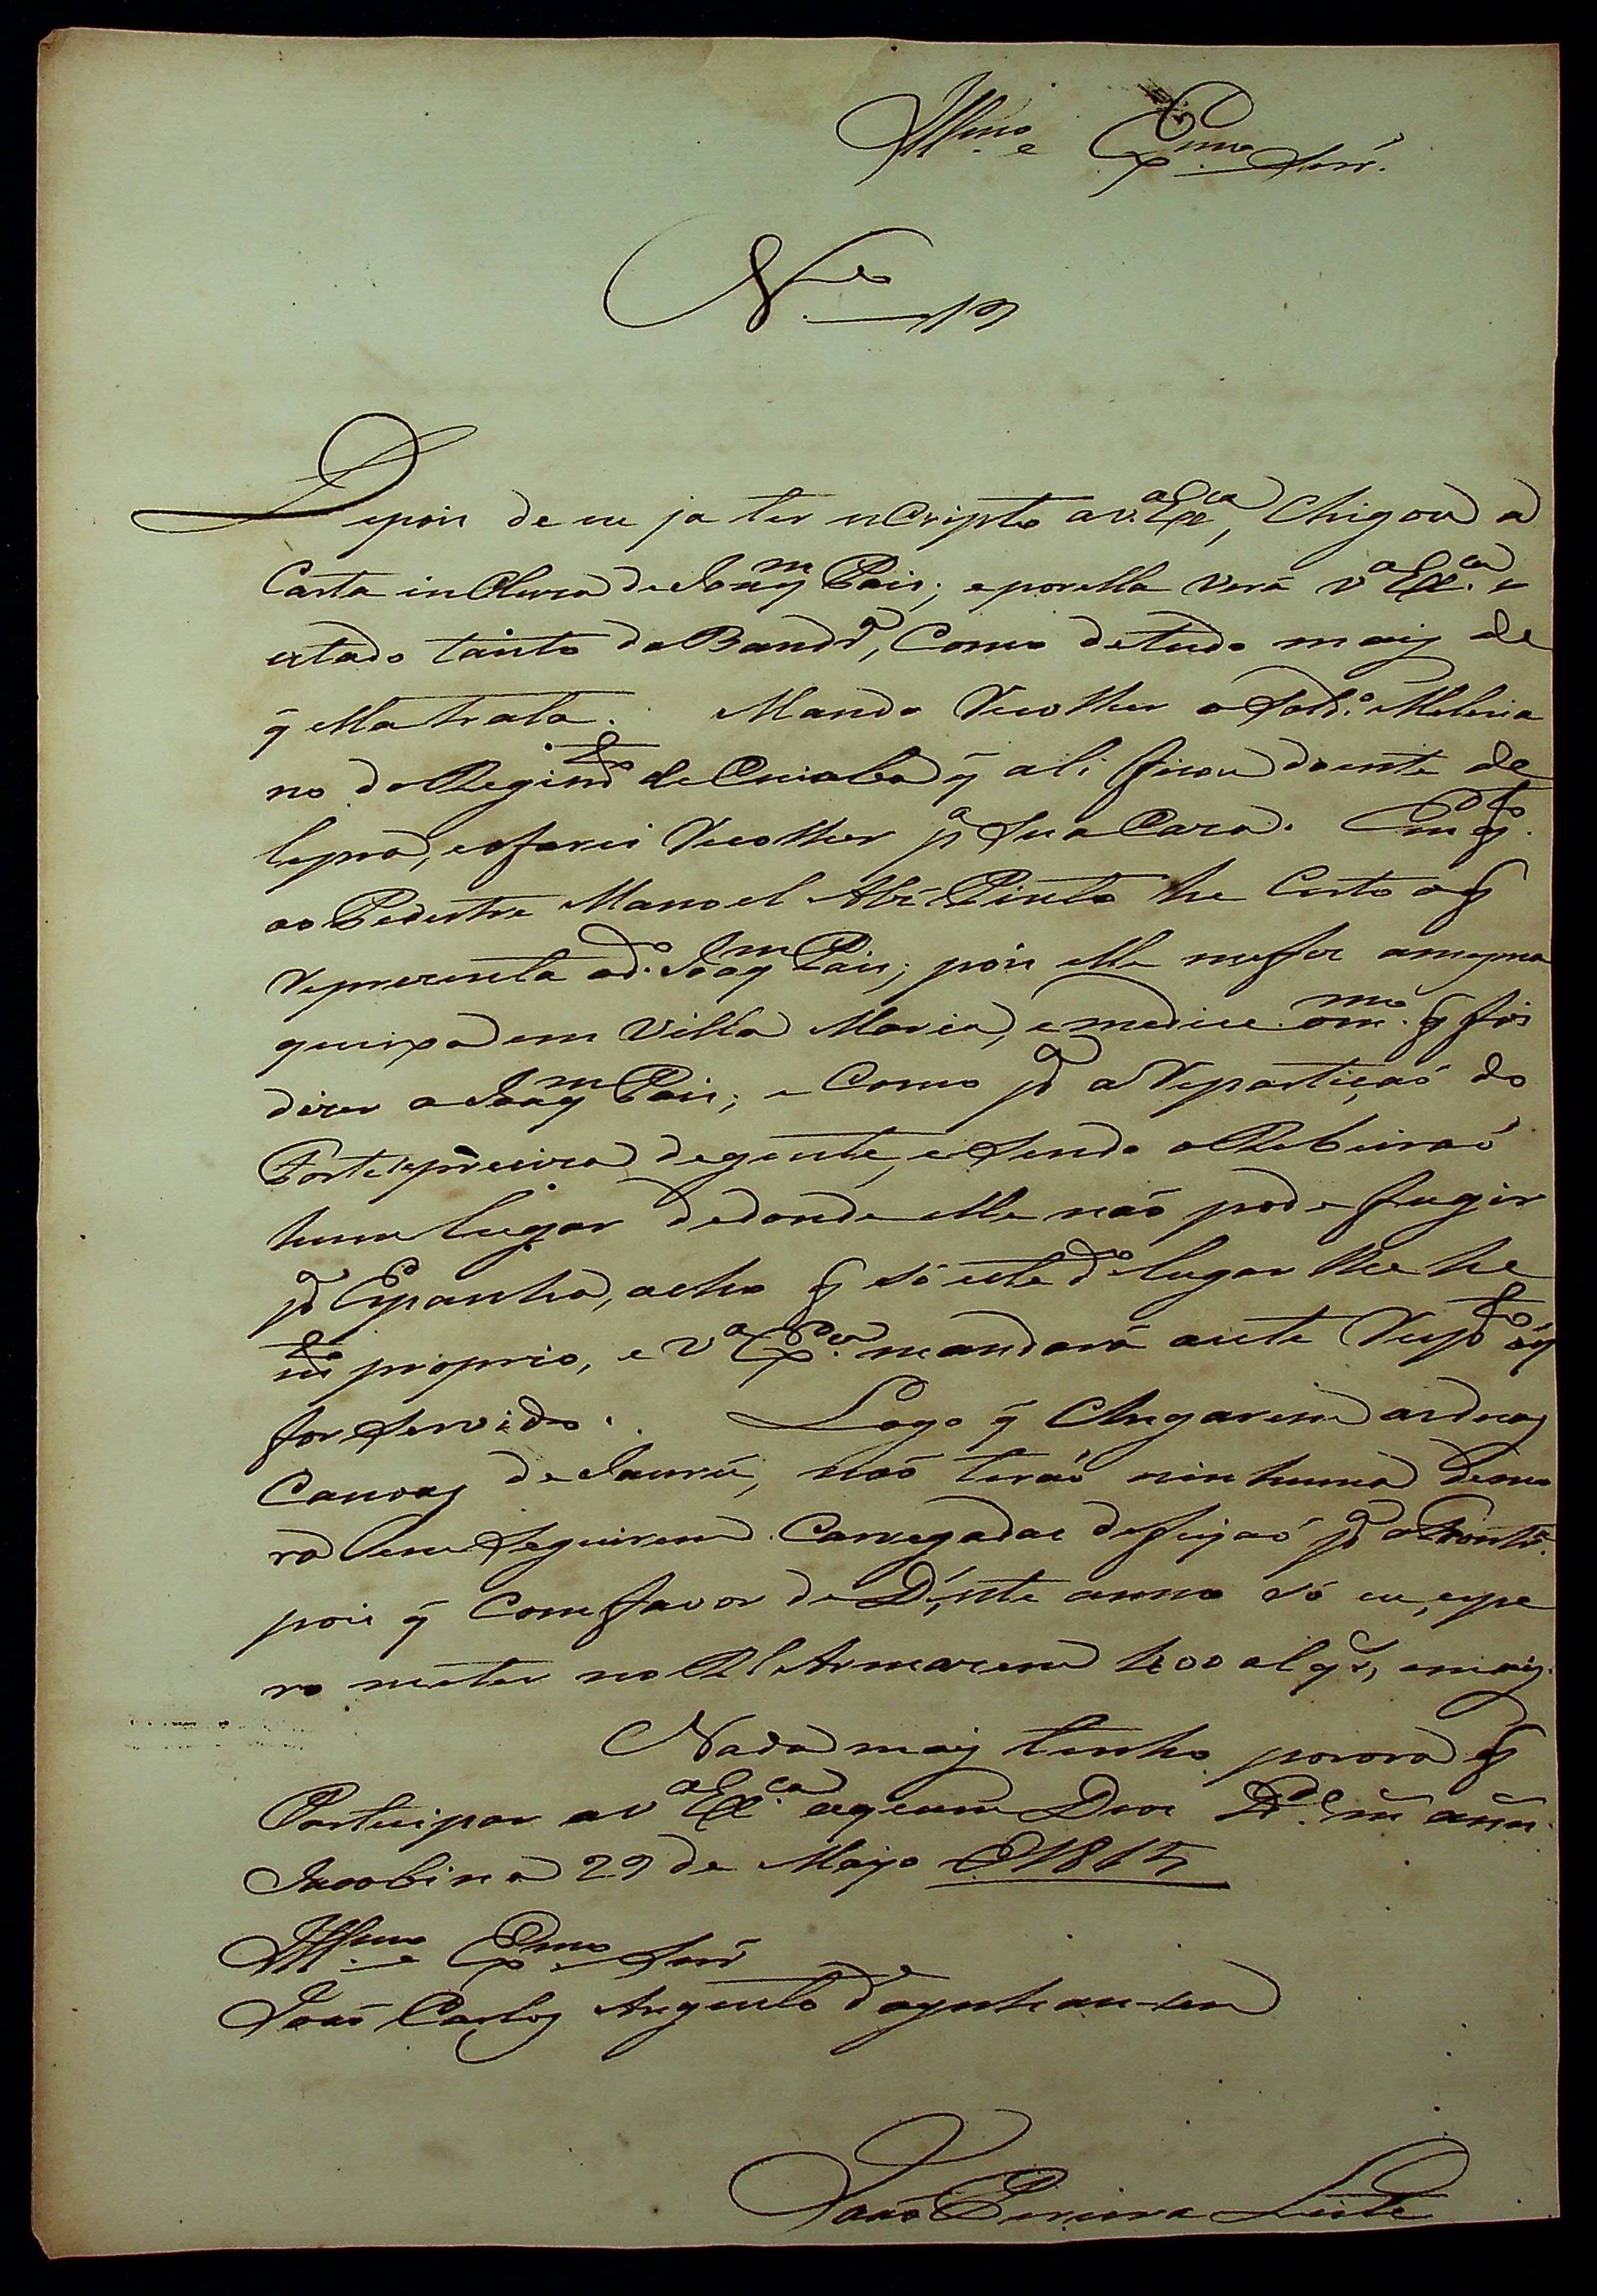 Ill.mo e Ex.mo Senr.
N.o 19
Depois de eu ja ter escripto a V.a Ex.ca, chegou a
Carta incluza de Joaq.m Pais; e por ella verá V.a Ex.ca o
estado tanto da Band.ra, como de tudo mais de
q̃ ella trata. Mando recolher o Sold.o
no do Regim.to de Cuiaba q̃ ali ficou doente de
lepra, e o farei recolher p.a sua Caza. Em q.to
ao Pedestre Manoel Alz̃ Pinto he certo o q̃
reprezenta o d.o Joaq.m Pais; pois elle me fez a mesma
queixa em Villa Maria, e me disse o m.mo q̃ foi
dizer a Joaq.m Pais; e como p.a a Repartiçaó do
Forte preciza de gente, e sendo o Ribeiraó
hum lugar dedonde elle naó pode fugir
p.a Espanha, acho q̃ só este d.o lugar lhe he
m.to proprio, e V.a Ex.ca mandará a este resp.to o q̃
for servido. Logo q̃ chegarem as duas
Canoas de Jaurú, naó teraó ninhuma demo
ra em seguirem carregadas de feijaó p.a a Front.ra
pois q̃ com favor de D.s, este anno só eu, espe
ro meter no R.l Armazem alq.s, e mais.
Nada mais tenho por ora q̃
Participar a V.a Ex.ca a quem Deos G.de m.s ann.s
Jacobina 29 de Mayo de 1815
Ill.mo e Ex.mo Senr.
Joaó Carlos Augusto d'Oeynhausen
Joaó Pereira Leite